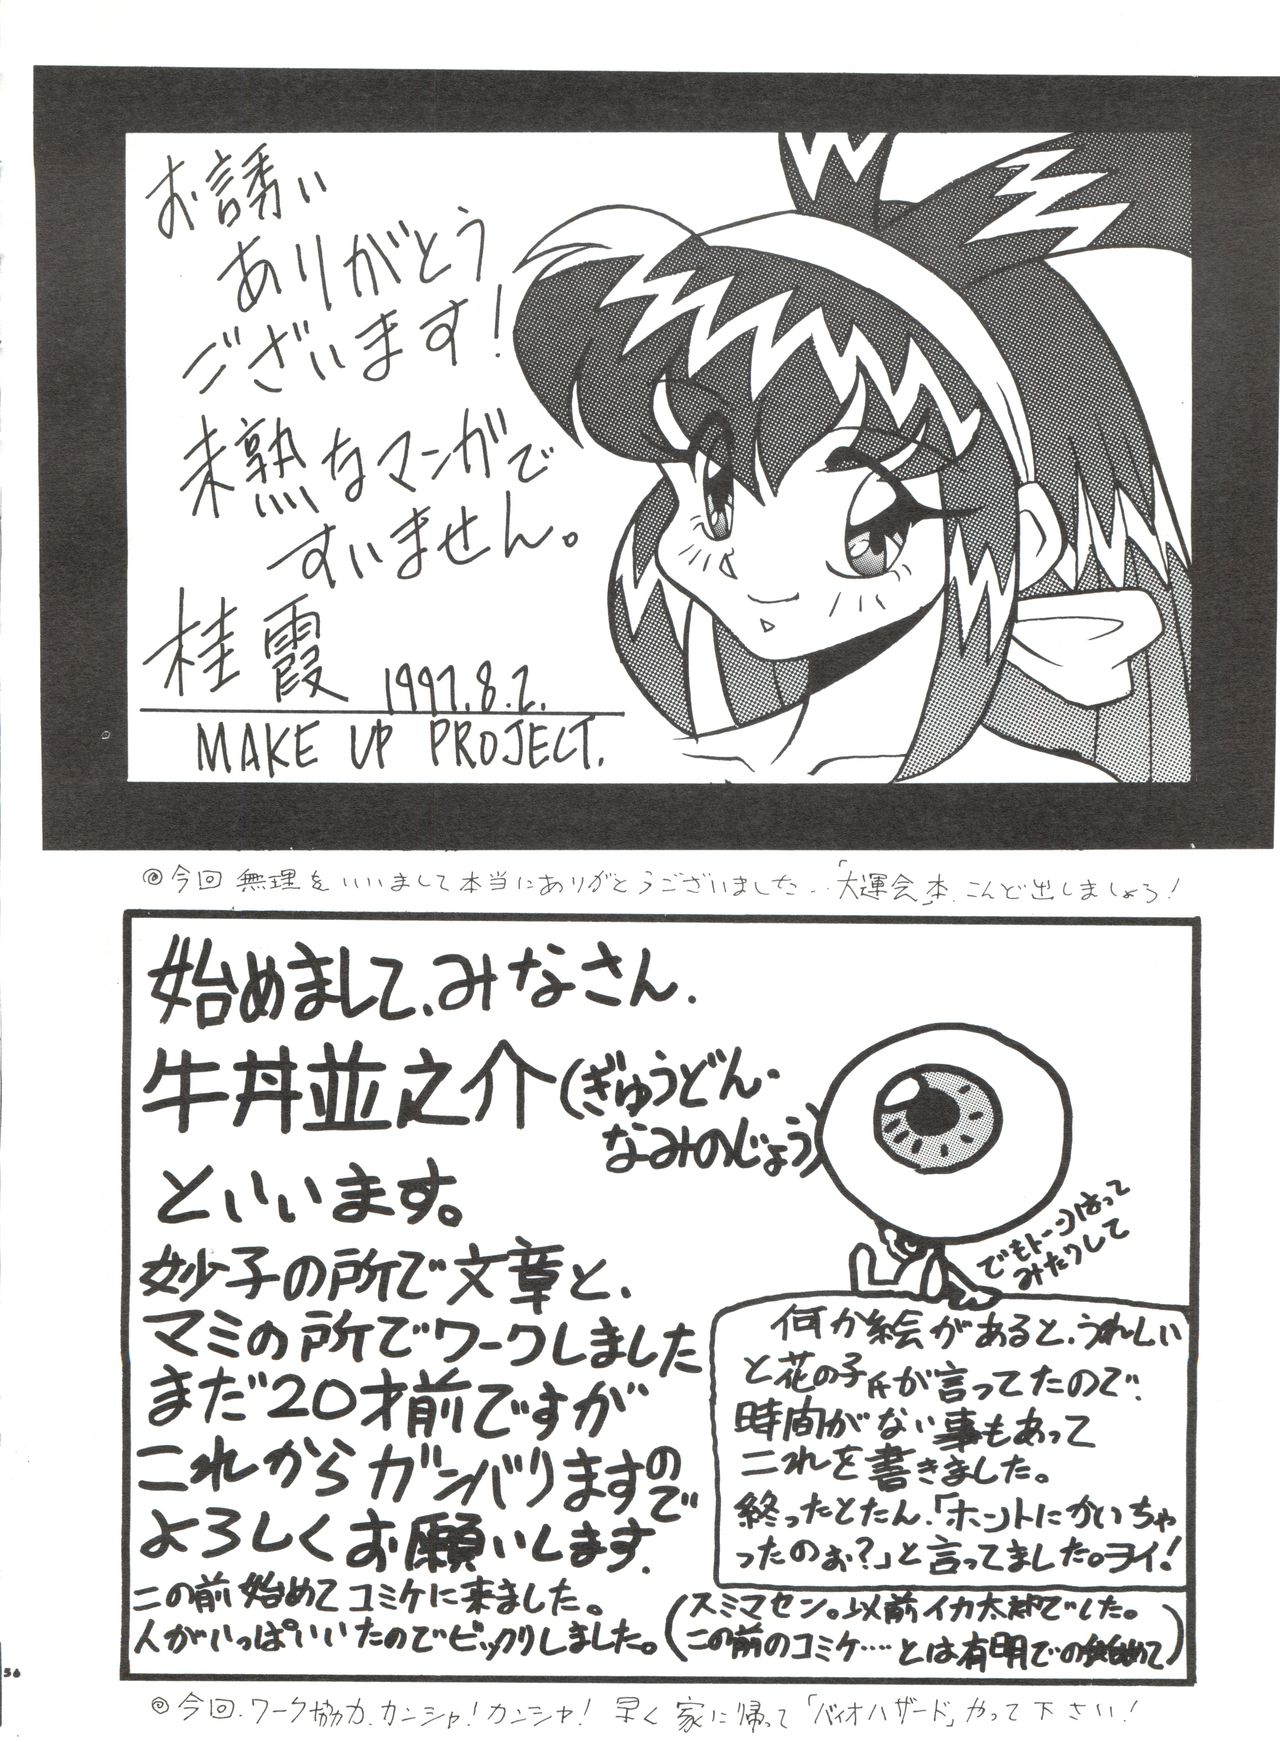 お誘い
ありがとう
ございます!
未熟なマンガで
すいません。
桂霞 1997.8.2.
MAKE UP PROJECT.
◎今回無理をいいまして本当にありがとうございました..「大運会」本、こんど出しましょう!
始めまして、みなさん.
牛丼並之介(ぎゅうどん・
なみのじょう)
といいます。
妙子の所で文章と、
マミの所でワークしました
まだ20才前ですが
これからガンバりますので
よろしくお願いします.
この前始めてコミケに来ました。
人がいっぱいいたのでビックリしました。
でもトーンはって
みたりして
何か絵があると、うれしい
と花の子氏が言ってたので、
時間がない事もあって
これを書きました。
終ったとたん、「ホントにかいちゃ
ったのぉ?」と言ってました。ヨイ!
(スミマセン。以前イカ太郎でした。
この前のコミケ‥‥とは有明での始めて)
56
◎今回、ワーク協力、カンシャ!カンシャ! 早く家に帰って「バイオハザード」やって下さい!